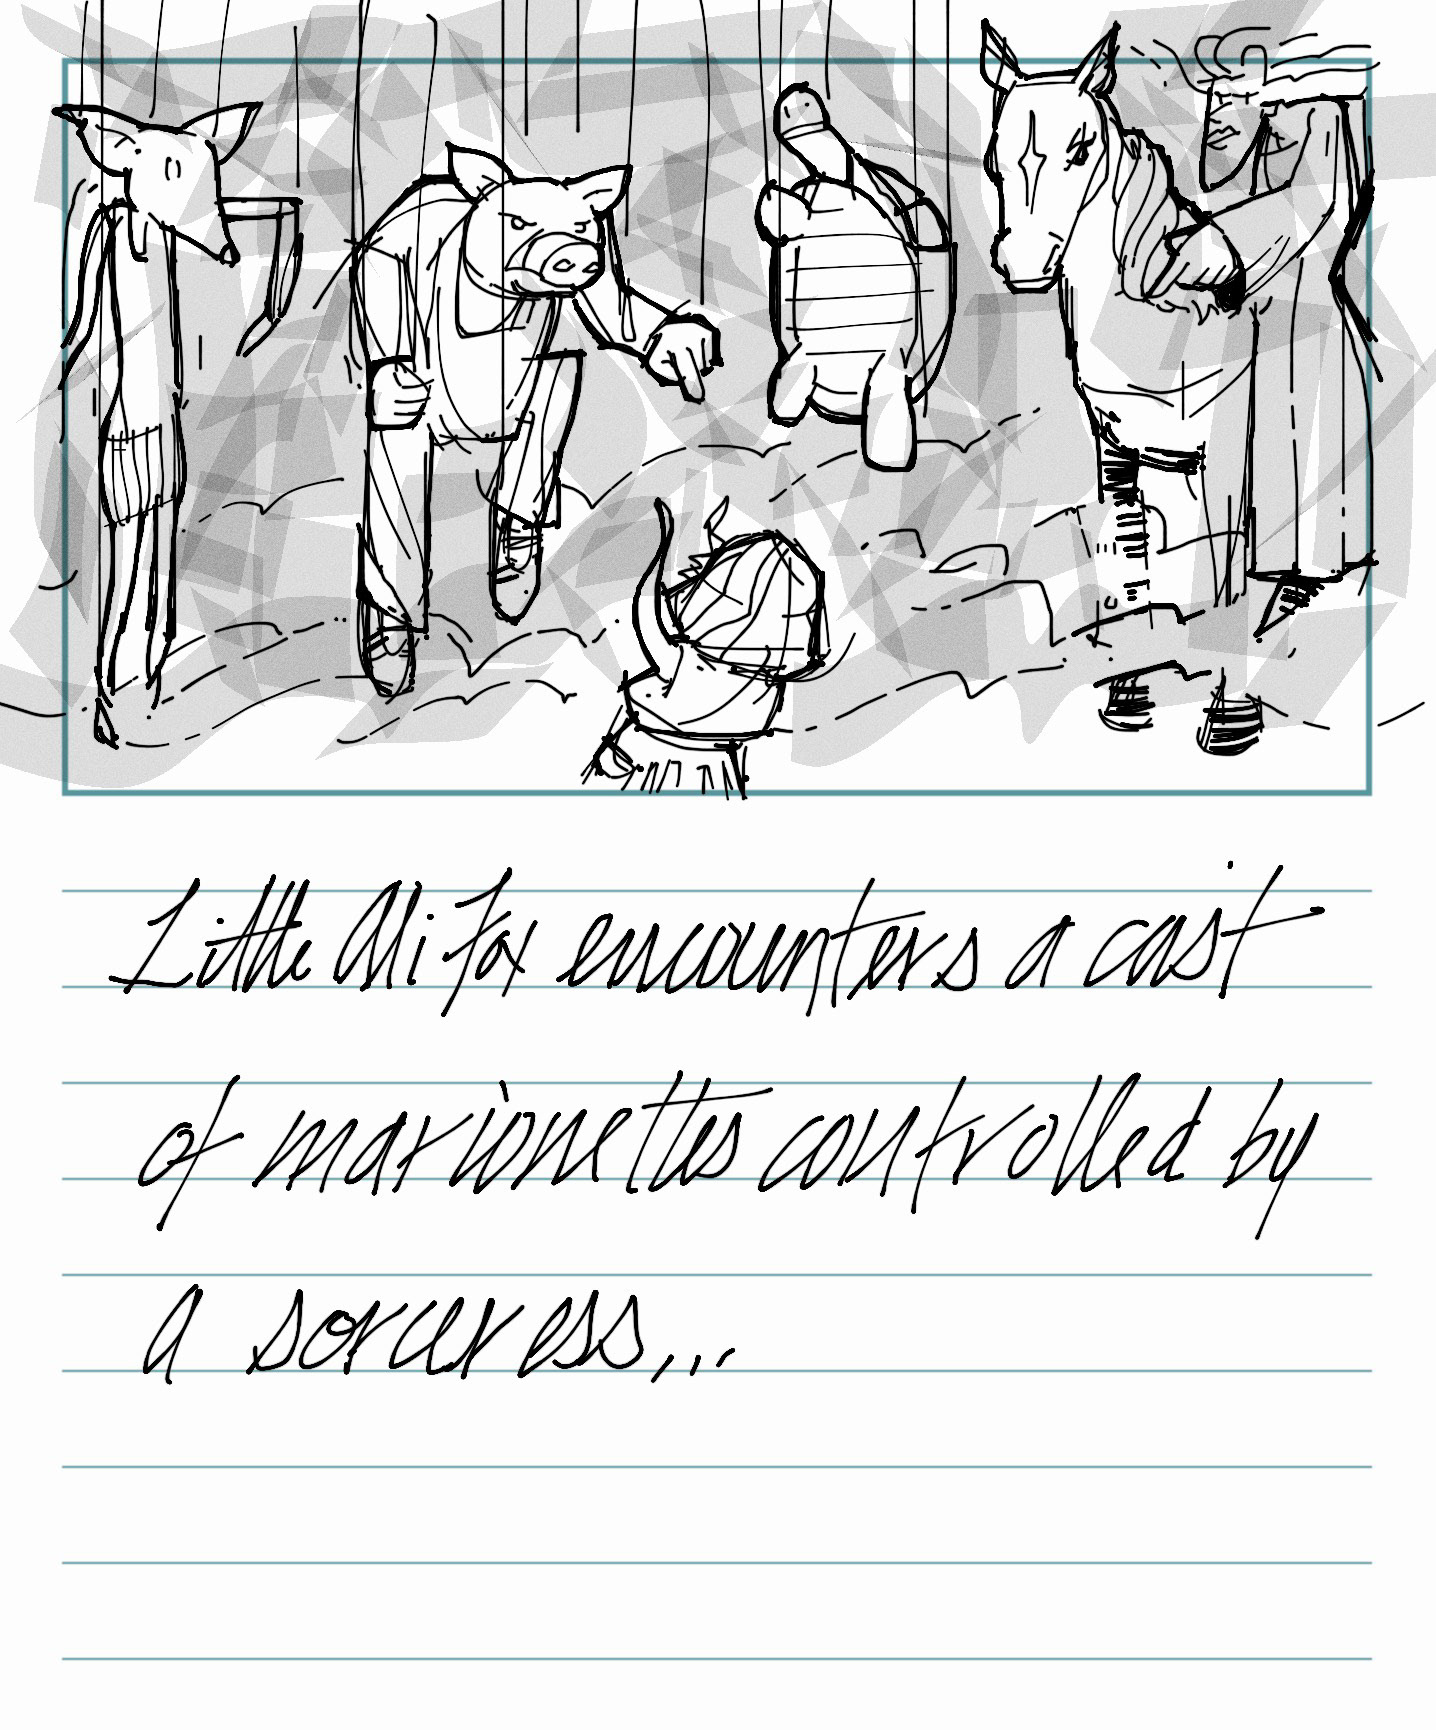 Little Ali Fox encounters a cast
of marionettes controlled by
a sorceress...